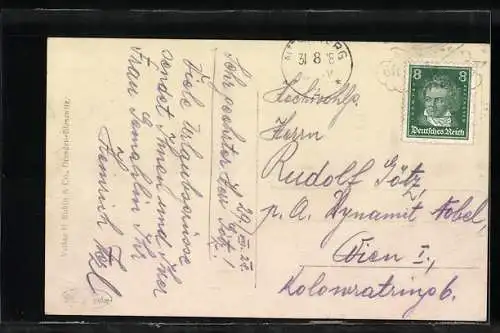 31 8
29. VIII. 27.
Sehr geehrter Herr Götz!
Viele Urlaubsgrüsse
sendet Ihnen und Ihrer
Frau Gemahlin Ihr
Heinrich
Hochwohlg.
Herrn
Rudolf Götz,
p. A. Dynamit Nobel,
Wien I.,
Kolowratring 6.
8 8
Deutsches Reich
Verlag H. & Co., Dresden-Blasewitz